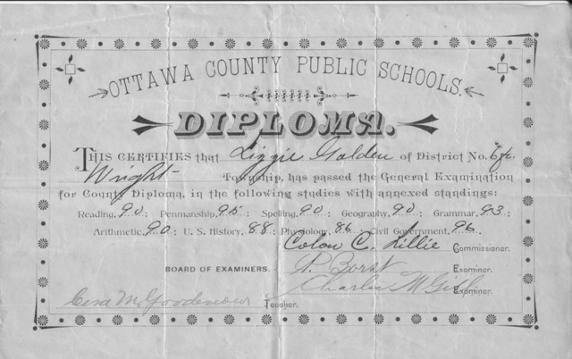 OTTAWA COUNTY PUBLIC SCHOOLS.
DIPLOMA.
THIS CERTIFIES that Lizzie Golden of District No.
Wright Township, has passed the General Examination
for County Diploma, in the following studies with annexed standings:
Reading, 90; Penmanship, 95; Spelling, 90; Geography, 90; Grammar, 93;
Arithmetic, 90; U. S. History, 88; Physiology, 86; Civil Government, 96.
Colon C. Lillie Commissioner.
BOARD OF EXAMINERS. P. Borst Examiner.
Charles M Examiner.
Cora M. Goodenow Teacher.